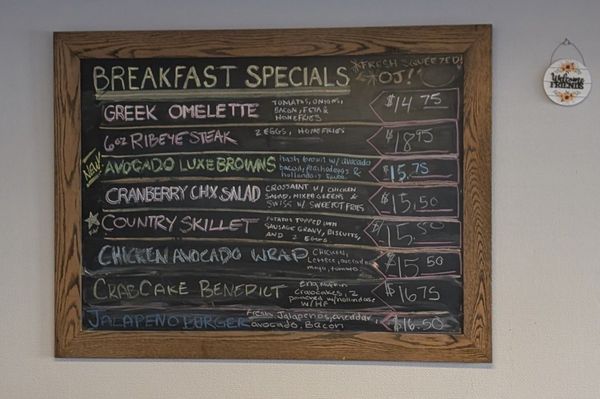 BREAKFAST SPECIALS
FRESH SQUEEZED
OJ!!
GREEK OMELETTE
TOMATOS, ONIONS,
BACON, FETA &
HOMEFRIES
$14.75
6oz RIBEYE STEAK
2 EGGS, HOMEFRIES
$18.95
NEW!
AVOCADO LUXE BROWNS
hash brown w/ avocado
bacon,
$15.75
CRANBERRY CHX SALAD
CROSSAINT W/ CHICKEN
SALAD, MIXED GREENS &
SWISS W/ SWEETPOT FRIES
$15.50
COUNTRY SKILLET
POTATOS TOPPED WITH
SAUSAGE GRAVY, BISCUITS,
AND 2 EGGS
$15.50
CHICKEN AVOCADO WRAP
CHICKEN,
Lettece, avocado
mayo, tomato
$15.50
CRABCAKE BENEDICT
English
Crabcakes, 2
poached w/ hollandase
W/HF
$16.75
JALAPENO BURGER
Fresh Jalapenos, cheddar,
avocado, Bacon
$16.50
Welcome
FRIENDS